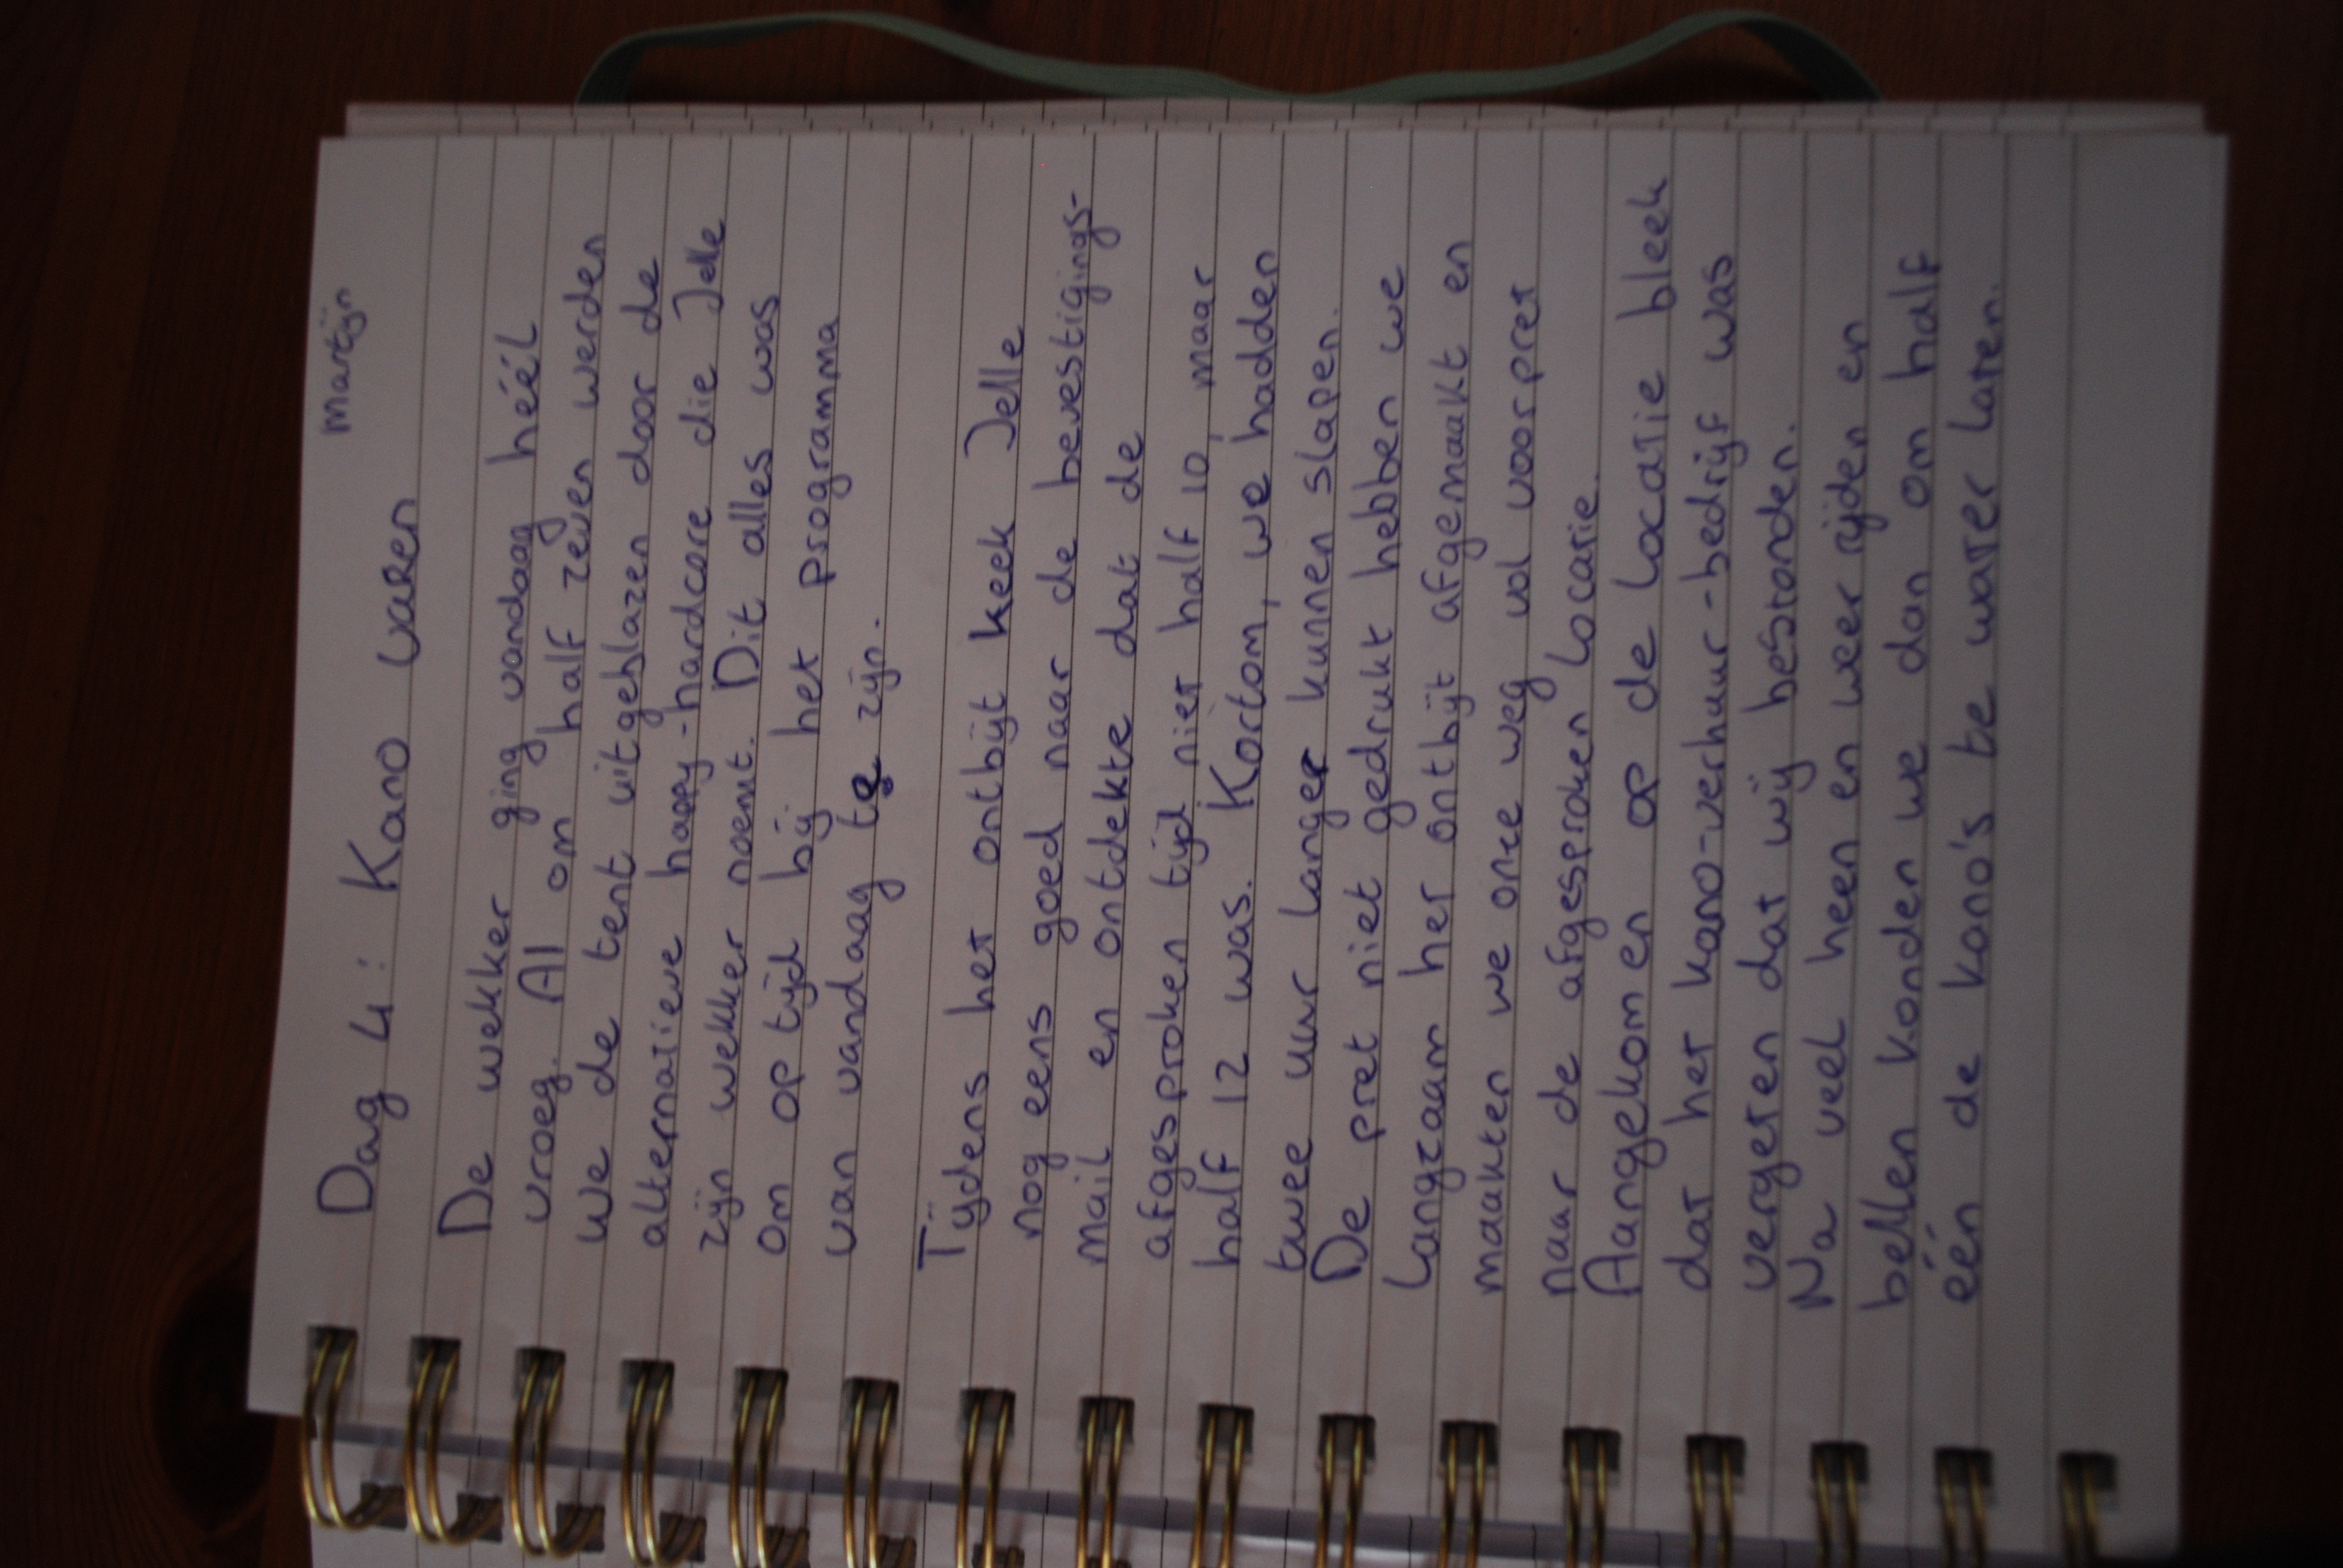 Martijn
Dag 4: Kano varen
De wekker ging vandaag héél
vroeg. Al om half zeven werden
we de tent uitgeblazen door de
alternatieve happy-hardcore die Jelle
zijn wekker noemt. Dit alles was
om op tijd bij het programma
van vandaag te zijn.
Tijdens het ontbijt keek Jelle
nog eens goed naar de bevestigings-
mail en ontdekte dat de
afgesproken tijd niet half 10, maar
half 12 was. Kortom, we hadden
twee uur langer kunnen slapen.
De pret niet gedrukt hebben we
langzaam het ontbijt afgemaakt en
maakten we onze weg vol voorpret
naar de afgesproken locatie.
Aangekomen op de locatie bleek
dat het kano-verhuur-bedrijf was
vergeten dat wij bestonden.
Na veel heen en weer rijden en
bellen konden we dan om half
één de kano's te water laten.